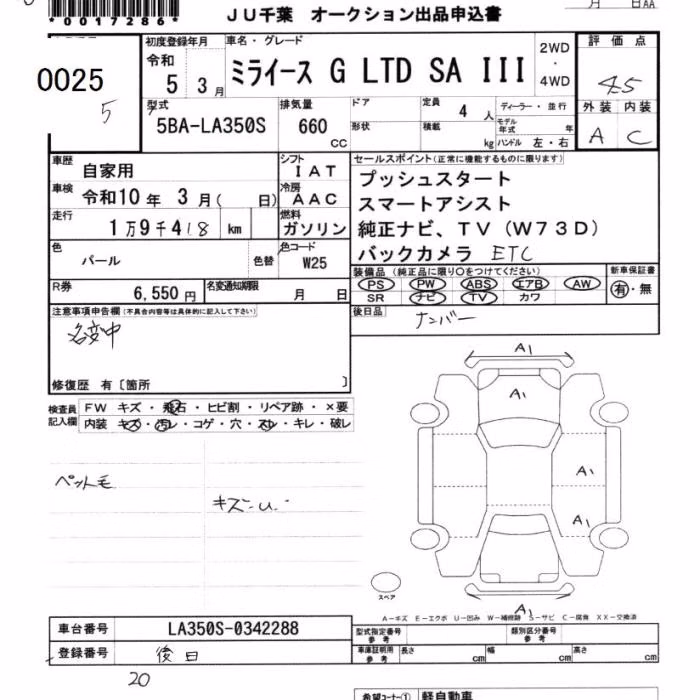 *0017286*
月 日AA
JU千葉 オークション出品申込書
0025
5
初度登録年月
令和
5 3月
車名・グレード
ミライース G LTD SA III
2WD
・
4WD
評価点
4.5
外装 内装
A C
型式
5BA-LA350S
排気量
660
CC
ドア
形状
定員 4 人
積載 kg
ディーラー・並行
モデル年式 年
ハンドル 左・右
車歴 自家用
車検 令和10年 3月( 日)
走行 1万9千418 km
シフト
IAT
冷房
AAC
燃料
ガソリン
セールスポイント(正常に機能するものに限ります)
プッシュスタート
スマートアシスト
純正ナビ、TV(W73D)
バックカメラ ETC
色
パール
色替
色コード
W25
R券 6,550円
名変通知期限 月 日
装備品(純正品に限り○をつけてください)
PS PW ABS エアB AW
SR ナビ TV カワ
新車保証書
有・無
注意事項申告欄(不具合内容等は具体的に記入して下さい)
名変中
修復歴 有〔箇所 〕
後日品
ナンバー
検査員記入欄
FW キズ・飛石・ヒビ割・リペア跡・×要
内装 キズ・汚レ・コゲ・穴・スレ・キレ・破レ
ペット毛
キズ・U.
A1
A1
A1
A1
A1
スペア
A-キズ E-エクボ U-凹み W-補修跡 S-サビ C-腐食 XX-交換済
車台番号 LA350S-0342288
登録番号 後日
型式指定番号 参考
類別区分番号 参考
車庫証明用 参考
長さ cm 幅 cm 高さ cm
20
希望コーナー① 軽自動車